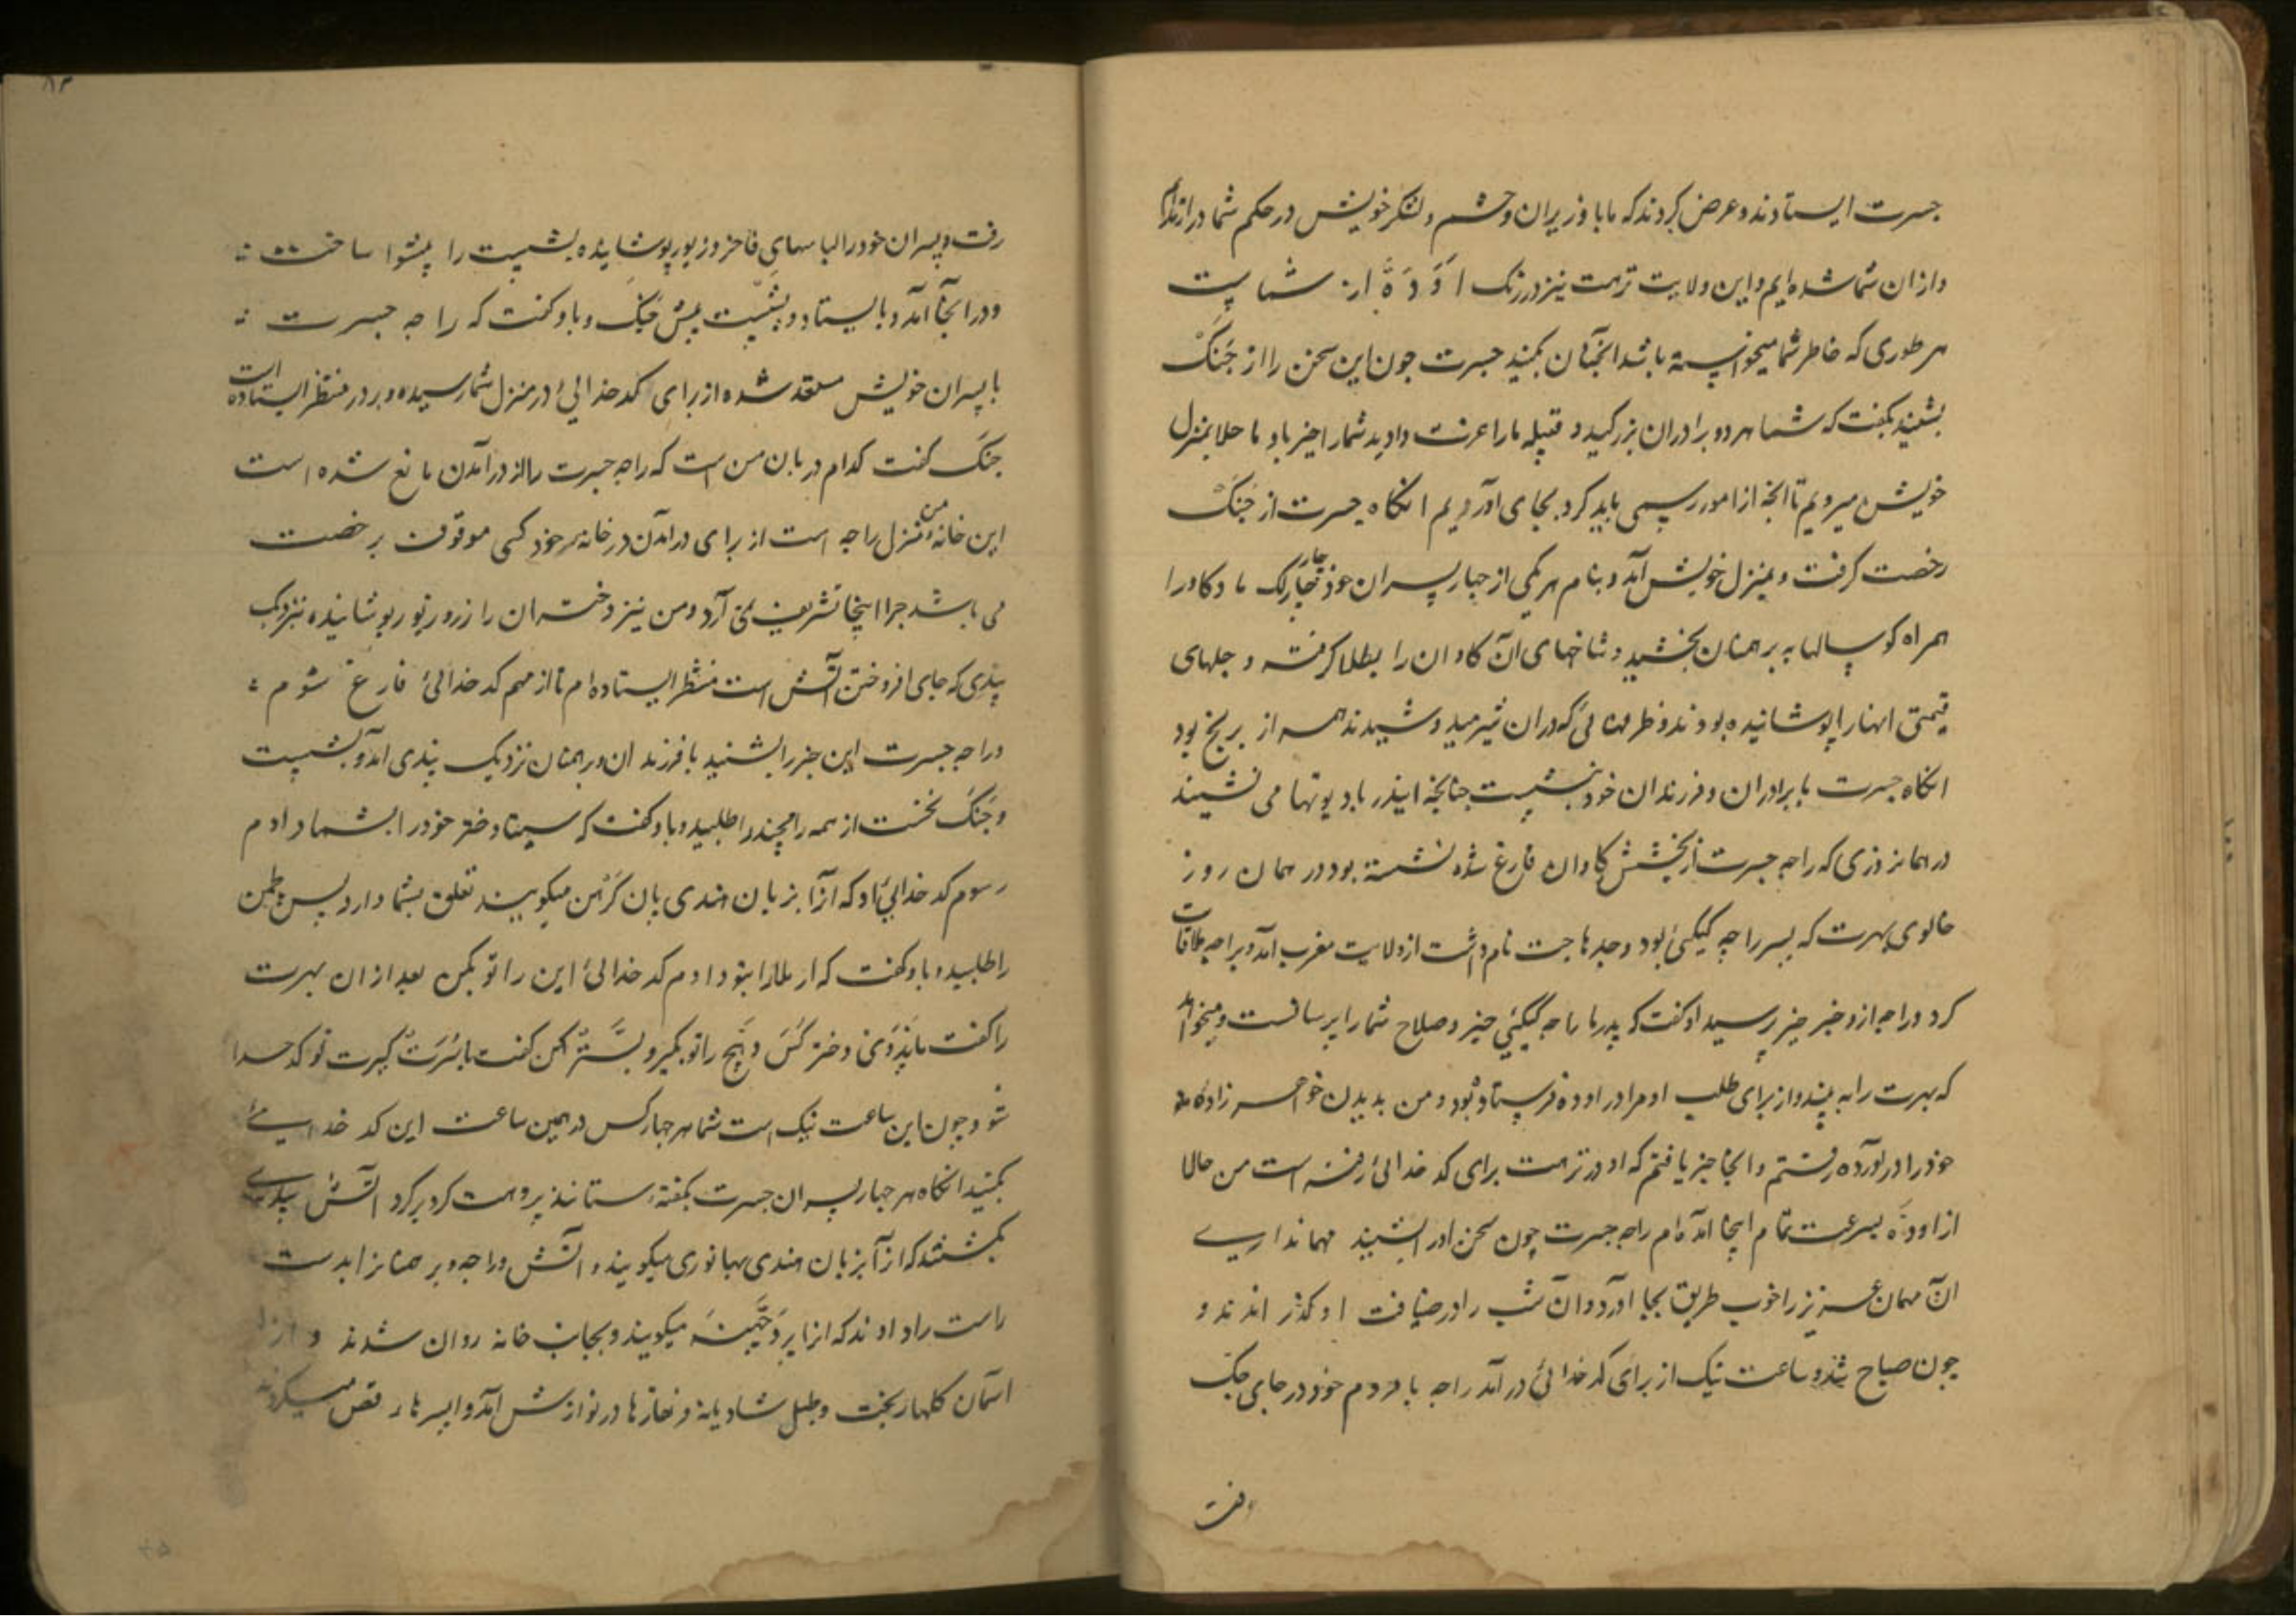 جسرت ایستادند و عرض کردند که ما با وزیران و حشم و لشکر خویش در حکم شما در ازنده‌ایم
و از ان شما شده ایم و این ولایت ترهت نیز در رنک اَوَدَهْ از شماست
هر طوری که خاطر شما میخواسته باشد انچنان بکنید جسرت چون این سخن را از جَنَکْ
بشنید بکفت که شما هر دو برادران بزرکید و قبیله ما را عزت دادید شما را خیر باد ما حلا بمنزل
خویش میرویم تا انچه از امور رسمی باید کرد بجای اوردیم انکاه جسرت از جَنَکْ
رخصت کرفت و بمنزل خویش آمد و بنام هر یکی از چهار پسران خود چار چار لک ماده کاو را
همراه کوسالها به برهمنان بخشید و شاخهای آن کاوان را بطلا کرفته و جلهای
قیمتی انها را پوشانیده بودند و ظرفهائی که دران شیر میدوشیدند همه از برنج بود
انکاه جسرت با برادران و فرزندان خود بنشست چنانچه ایندر با دیوتها می نشیند
در همانروزی که راجه جسرت از بخشش کاوان فارغ شده نشسته بود در همان روز
خالوی بهرت که پسر راجه کیکئی بود و جدهاجت نام داشت از ولایت مغرب آمد و براجه ملاقات
کرد و راجه ازو خبر خیر پرسید او کفت که پدر ما راجه کیکئی خیر و صلاح شما را پرسانست و میخواهد
که بهرت را به بیند و از برای طلب او مرا در اوده فرستاده بود و من بدیدن خواهر زاده
خود را در اورده رفتم و انجا خبر یافتم که او در ترهت برای کد خدائی رفته است من حالا
از اوده بسرعت تمام اینجا آمده ام راجه جسرت چون سخن اورا بشنید مهماندارے
آن مهمان عزیز را خوب طریق بجا آورد و آن شب را در ضیافت او کذرانندند و
چون صباح شد و ساعت نیک از برای کد خدائی در آمد راجه با مردم خود در جای جک
رفت
رفت و پسران خود را لباسهای فاخر و زیور پوشانیده بشیست را پیشوا ساخت
و در انجا آمد و بایستاد و بشیست پیش جنک و باو کفت که راجه جسرت
با پسران خویش مستعد شده از برای کد خدائی در منزل شما رسیده و بر در منتظر ایستاده است
جنک کفت کدام دربان من است که راجه جسرت را از در آمدن مانع شده است
این خانه من و منزل راجه است از برای در آمدن در خانه خود کسی موقوف رخصت
می باشد چرا اینجا تشریف نمی آرد و من نیز دختران را زر و زیور پوشانیده نزدیک
بیدی که جای افروختن آتش است منتظر ایستاده ام تا از مهم کد خدائی فارغ شوم
و راجه جسرت این خبر را بشنید با فرزندان و برهمنان نزدیک بیدی آمد و بنشست
و جنک نخست از همه رامچندر را طلبید و باو کفت که سیتا دختر خود را بشما دادم
رسوم کد خدائی او که آنرا بزبان هندی پان کَرَهن میکویند تعلق بشما دارد پس لچمن
را طلبید و باو کفت که ارملا را بتو دادم کد خدائی این را تو بکن بعد از ان بهرت
را کفت ماندوی دختر کس دهج را تو بکیر و ستر کهن کفت با سُرَت کیرت تو کد خدا
شو و چون این ساعت نیک است شما هر چهار کس در همین ساعت این کد خدایئ
بکنید انکاه هر چهار پسران جسرت بکفته ستانند پروهت کرد بر کرد آتش بیدی
بکشتند که آنرا بزبان هندی بهانوری میکویند و آتش و راجه و برهمنان را بدست
راست راه دادند که انرا پردَچّهنه میکویند و بجانب خانه روان شدند و از
آسمان کلها ریخت و طبل شادیانه و نقارها در نوازش آمد و اپسرها رقص میکردند